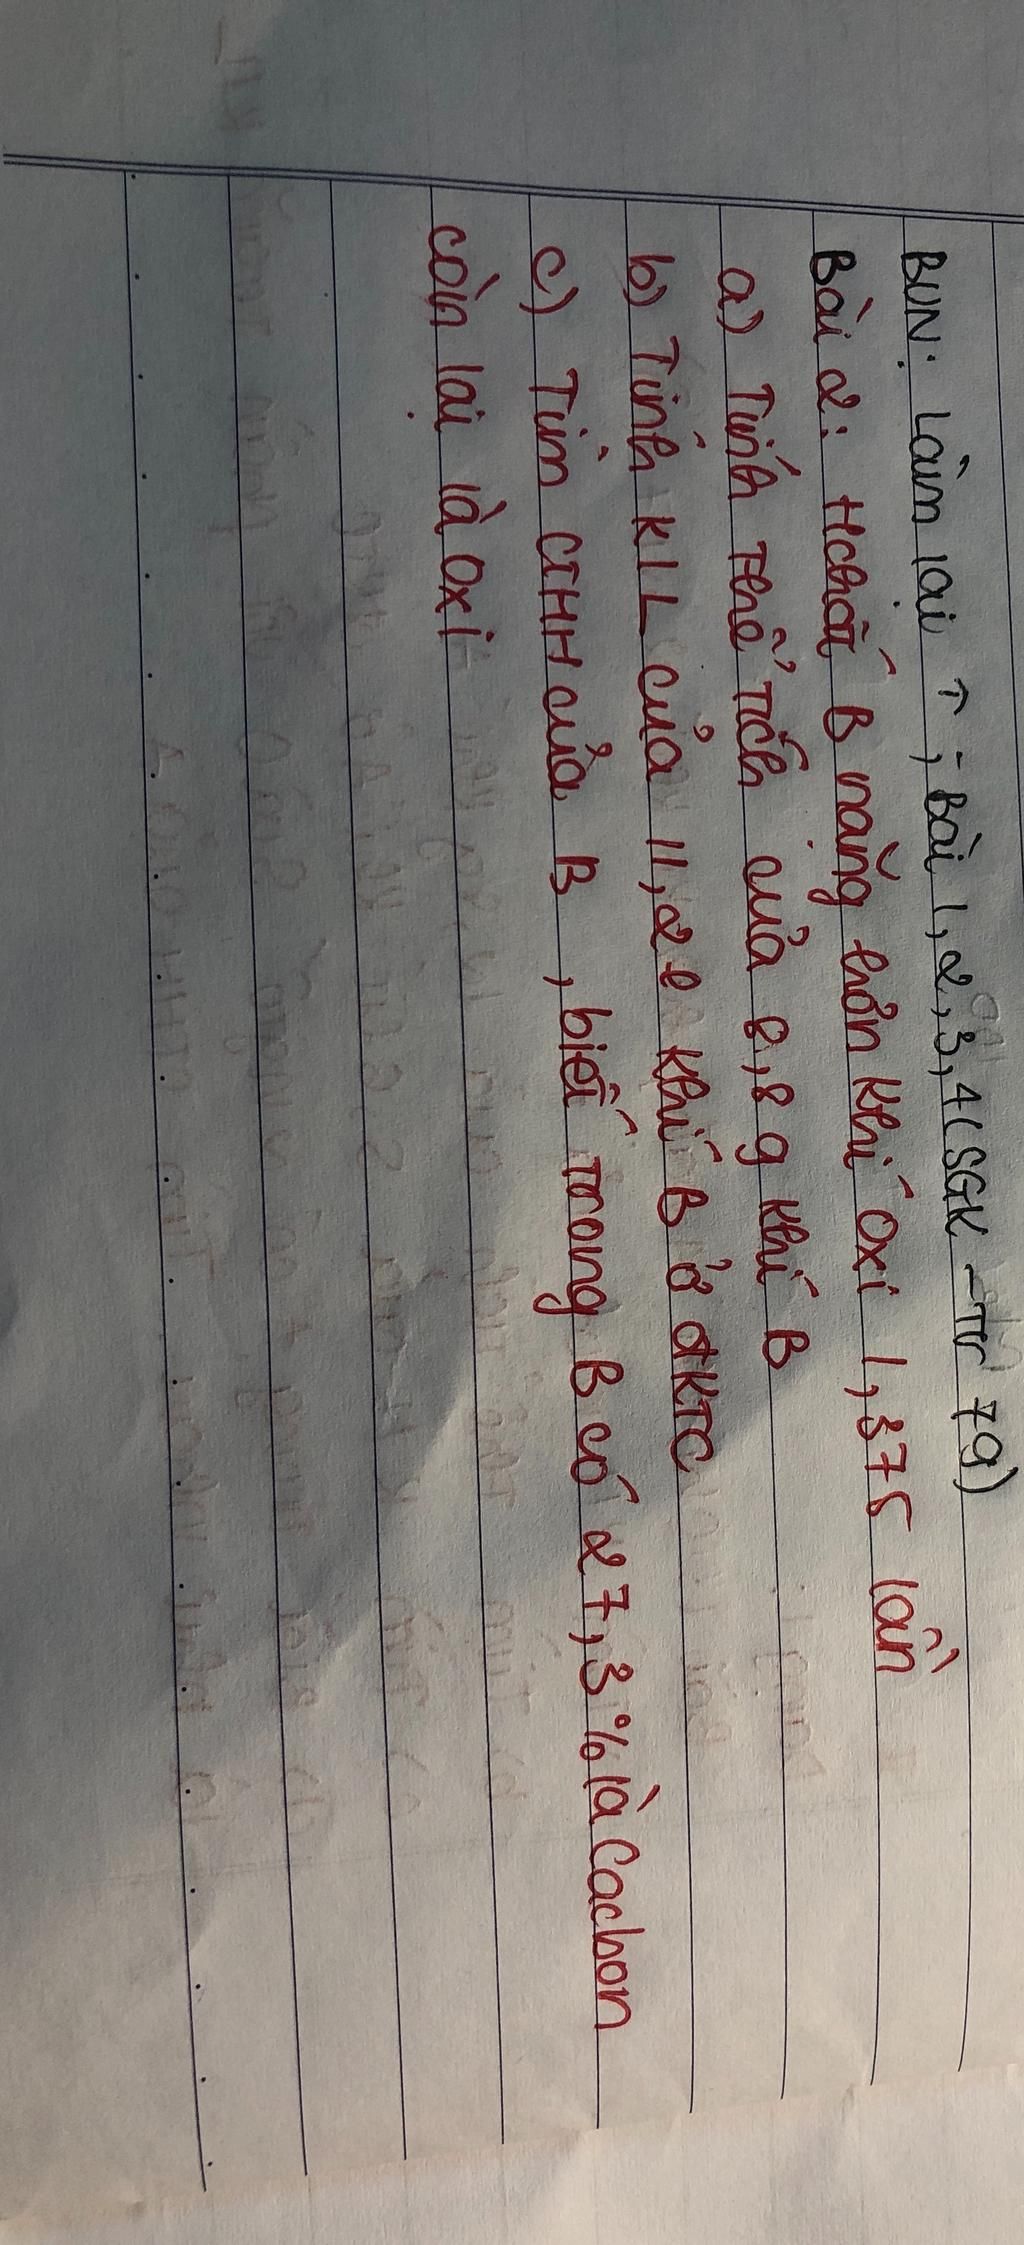 BVN: Làm lại ↑; Bài 1,2,3,4 (SGK - Tr 79)
Bài 2: Hchất B nặng hơn khí oxi 1,375 lần
a) Tính thể tích của 8,8 g khí B
b) Tính KlL của 11,2 l khí B ở đktc
c) Tìm CTHH của B, biết trong B có 27,3% là Cacbon
còn lại là oxi